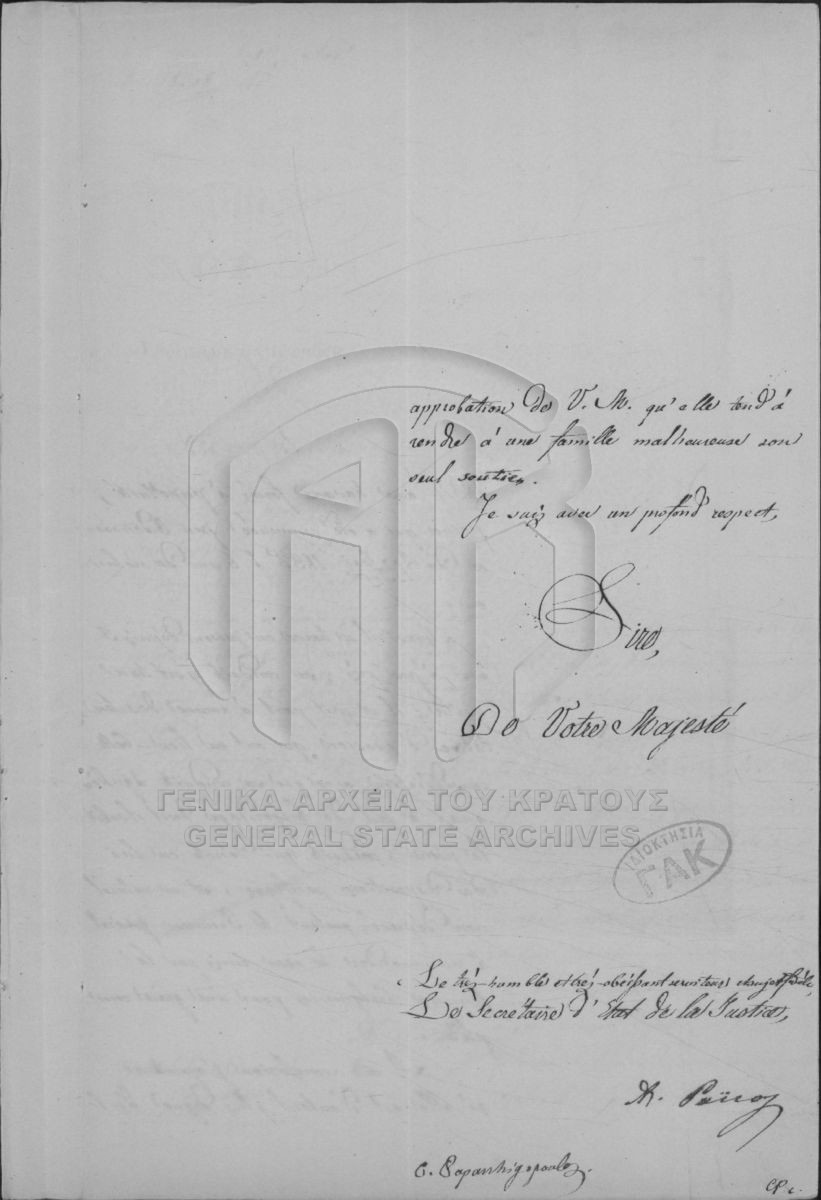 approbation de V. M. qu'elle tend à
rendre à une famille malheureuse son
seul soutien.
Je suis avec un profond respect,
Sire,
De Votre Majesté
ΓΕΝΙΚΑ ΑΡΧΕΙΑ ΤΟΥ ΚΡΑΤΟΥΣ
GENERAL STATE ARCHIVES
ΙΔΙΟΚΤΗΣΙΑ
ΓΑΚ
Le très-humble et très-obéissant serviteur et sujet fidèle,
Le Secrétaire d'Etat de la Justice,
A. Païcos
C. Paparrhigopoulos.